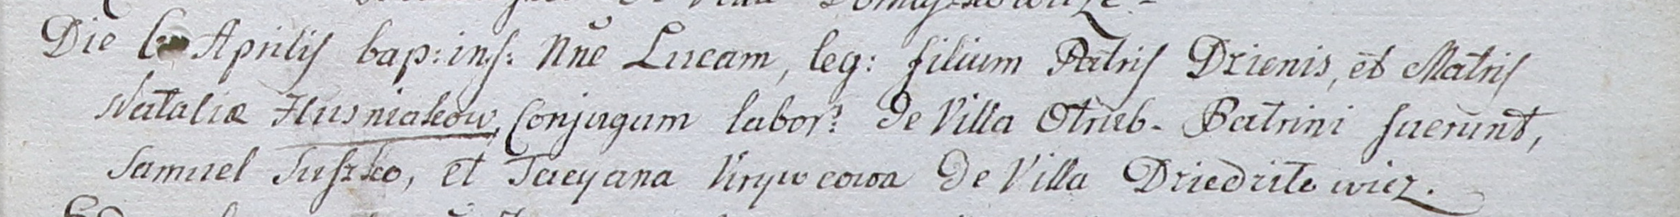 Die 6 Aprilis bap: inf: Nne Lucam, leg: filium Patris Dzienis, et Matris
Nataliæ Husniakow, Conjugum labor: de Villa Otrub. Patrini fuerunt,
Samuel Suszko, et Tacyana Krywcowa de Villa Dziedzilowicz.